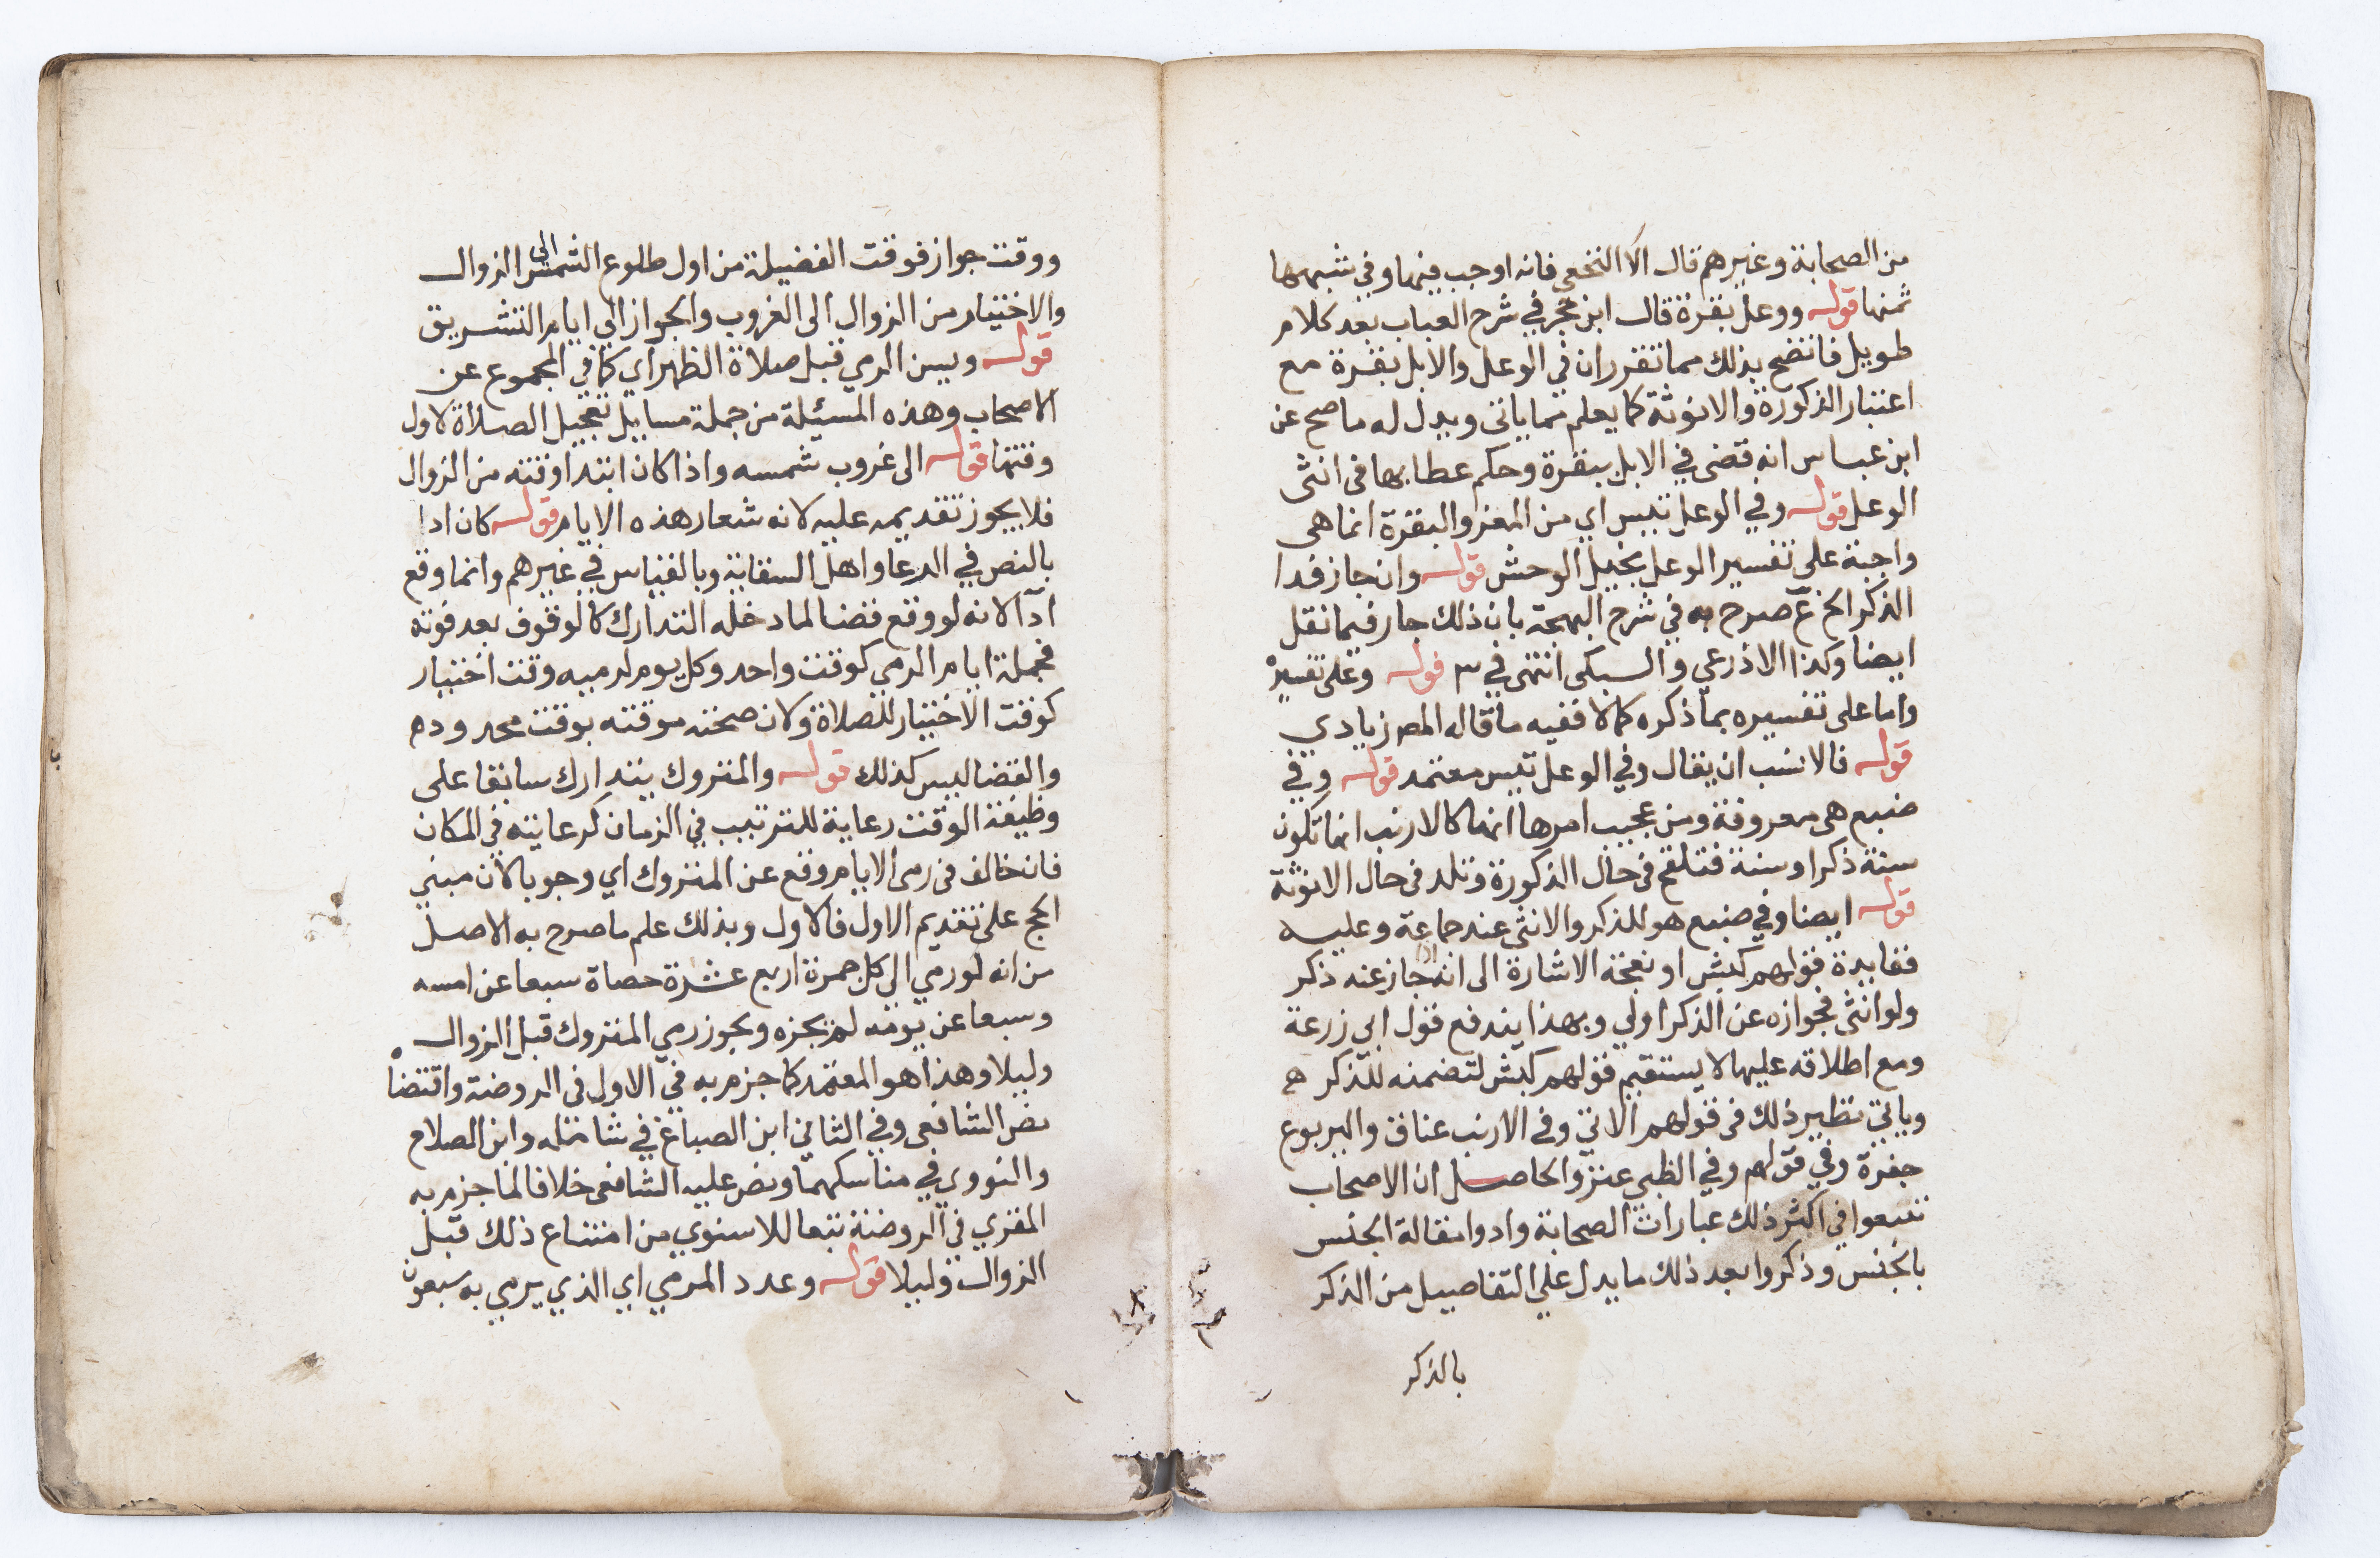 من الصحابة وغيرهم قال الا النخعي فانه اوجب فيها وفي شبهها
ثمنها قوله ووعل بقرة قال ابن حجر في شرح العباب بعد كلام
طويل فاتضح بذلك مما تقرر ان في الوعل والابل بقرة مع
اعتبار الذكورة والانوثة كما يعلم مما ياتى ويدل له ما صح عن
ابن عباس انه قضى في الابل ببقرة وحكم عطا بها فى انثى
الوعل قوله وفي الوعل تيس اي من المعز والبقرة انما هى
واجبة على تفسير الوعل بخيل الوحش قوله وان جاز فدا
الذكر الخ صرح به في شرح البهجة بان ذلك جار فيما نقل
ايضا وكذا الاذرعي والسبكى انتهى في قوله وعلى تفسيره
واما على تفسيره بما ذكره كمالا ففيه ما قاله المص زيادي
قوله فالانسب ان يقال وفي الوعل تيس معتمد قوله وفي
ضبع هى معروفة ومن عجيب امرها انها كالارنب انما تكون
سنة ذكرا وسنة فتلقح فى حال الذكورة وتلد فى حال الانوثة
قوله ايضا وفي ضبع هو للذكر والانثى عند جماعة وعليه
ففايدة قولهم كبش او نعجة الاشارة الى انه اذا جاز عنه ذكر
ولو انثى فجوازه عن الذكر اولي وبهذا يندفع قول ابى زرعة
ومع اطلاقه عليها لا يستقيم قولهم كبش لتضمنه للذكر
وياتي نظير ذلك فى قولهم الاتي وفي الارنب عناق واليربوع
جفرة وفي قولهم وفي الظبي عنز والحاصل ان الاصحاب
تتبعوا في اكثر ذلك عبارات الصحابة وادوا مقالة الجنس
بالجنس وذكروا بعد ذلك ما يدل علي التفاصيل من الذكر
بالذكر
ووقت جواز فوقت الفضيلة من اول طلوع الشمس الى الزوال
والاختيار من الزوال الى الغروب والجواز الي ايام التشريق
قوله ويسن الرمي قبل صلاة الظهر اي كما في المجموع عن
الاصحاب وهذه المسئلة من جملة مسايل تعجيل الصلاة لاول
وقتها قوله الى غروب شمسه واذا كان ابتدا وقته من الزوال
فلا يجوز تقديمه عليه لانه شعار هذه الايام قوله كان ادا
بالنص في الرعا واهل السقاية وبالقياس في غيرهم وانما وقع
ادآ لانه لو وقع قضا لما دخله التدارك كالوقوف بعد فوته
فجملة ايام الرمى كوقت واحد وكل يوم لرميه وقت اختيار
كوقت الاختيار للصلاة ولان صحته موقته بوقت محدود
والقضا ليس كذلك قوله والمتروك يتدارك سابقا على
وظيفة الوقت رعاية للترتيب في الزمان كرعايته في المكان
فان خالف فى رمى الايام وقع عن المتروك اي وجوبا لان مبني
الحج على تقديم الاول فالاول وبذلك علم ما صرح به الاصل
من انه لو رمي الى كل جمرة اربع عشرة حصاة سبعا عن امسه
وسبعا عن يومه لم يجزه ويجوز رمي المتروك قبل الزوال
وليلا وهذا هو المعتمد كما جزم به في الاول فى الروضة واقتضاه
نص الشافعى وفي الثاني ابن الصباغ في شامله وابن الصلاح
والنووي في مناسكهما ونص عليه الشافعى خلافا لما جزم به
المقري في الروضة تبعا للاسنوي من امتناع ذلك قبل
الزوال وليلا قوله وعدد المرمي اي الذي يرمي به سبعون